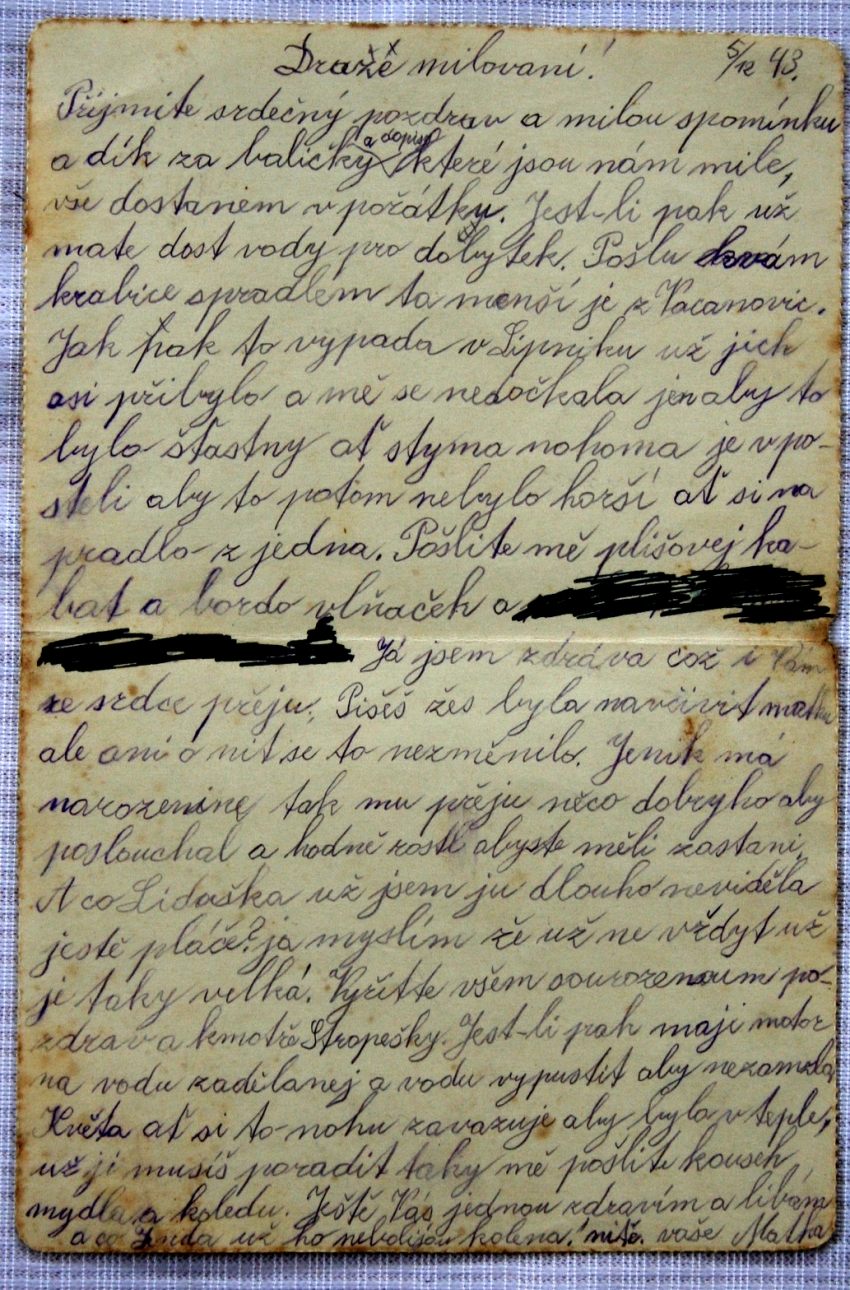 Drazě milovaní! 5/12 43.
Přijmite srdečný pozdrav a milou spomínku
a dopisy
a dík za baličky které jsou nám mile,
vše dostanem v pořátku. Jest-li pak už
mate dost vody pro dobytek. Pošlu kvám
krabice spradlem ta menší je z Vacanovic.
Jak pak to vypada v Lipniku už jich
asi přibylo a mě se nedočkala jen aby to
bylo šťastny ať styma nohoma je v po-
steli aby to potom nebylo horší ať si na
pradlo z jedna. Pošlite mě plišovej ka-
bat a bordo vlňaček a
Já jsem zdráva což i Vám
ze srdce přeju. Pišeš žes byla navčivit matku
ale ani o nit se to nezměnilo. Jenik má
narozenine tak mu přeju něco dobryho aby
poslouchal a hodně rostl abyste měli zastani.
A co Liduška už jsem ju dlouho neviděla
jestě pláče? ja myslím že už ne vždyt už
je taky velká. Vyřitte všem sourozencum po-
zdrav a kmotře Stropešky. Jest-li pak maji motor
na vodu zadělanej a vodu vypustit aby nezamrzla
Květa ať si to nohu zavazuje aby byla v teple,
už ji musíš poradit taky mě pošlite kousek
mydla a koledu. Ještě Vás jednou zdravím a libám
a co už ho nebolijou kolena! nitě. vaše Matka